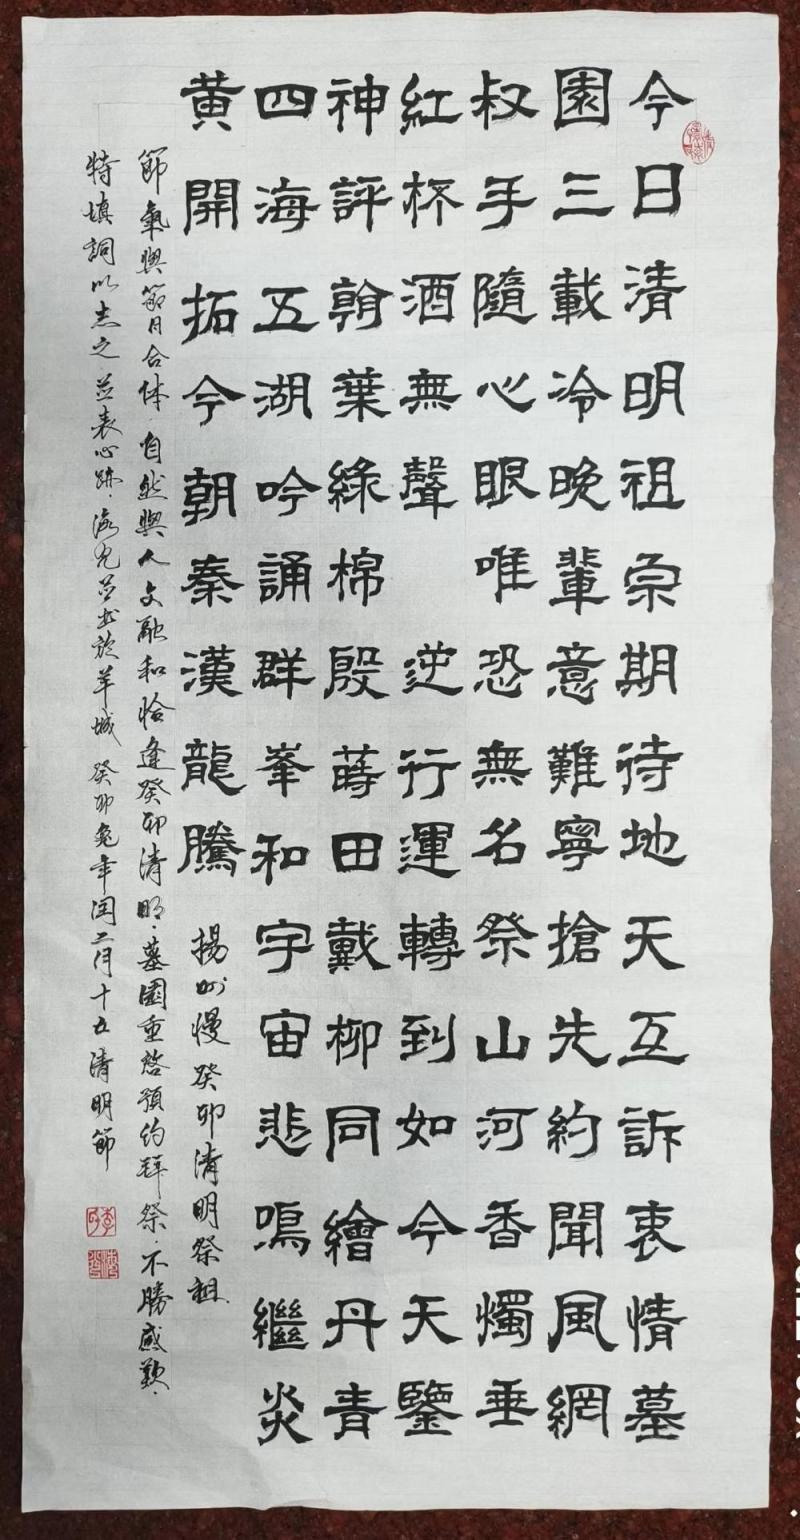 今日清明祖宗期待地天互訴衷情墓
園三載冷晚輩意難寧搶先約聞風網
叔手隨心眼唯恐無名祭山河香燭垂
紅杯酒無聲 逆行運轉到如今天鑒
神評翰葉綠棉殷蒔田戴柳同繪丹青
四海五湖吟誦群峯和宇宙悲鳴繼炎
黃開拓今朝秦漢龍騰
揚州慢 癸卯清明祭祖
節氣與節日合体·自然與人文融和恰逢癸卯清明·墓園重啓預約拜祭·不勝感歎
特填詞以志之並表心跡·海光並书於羊城 癸卯兔年閏二月十五清明節